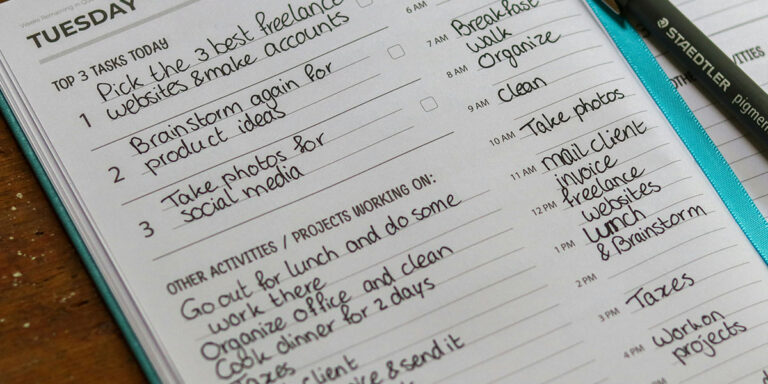 Weeks Remaining in
TUESDAY
TOP 3 TASKS TODAY
1 Pick the 3 best freelance
websites & make accounts
2 Brainstorm again for
product ideas
3 Take photos for
social media
OTHER ACTIVITIES / PROJECTS WORKING ON:
Go out for lunch and do some
work there
Organize office and clean
Cook dinner for 2 days
Taxes
client
& send it
6 AM
Breakfast
7 AM walk
8 AM Organize
9 AM Clean
10 AM Take photos
11 AM mail client
invoice
12 PM freelance
websites
1 PM lunch
& Brainstorm
2 PM
3 PM Taxes
4 PM Work on
projects
STAEDTLER pigment